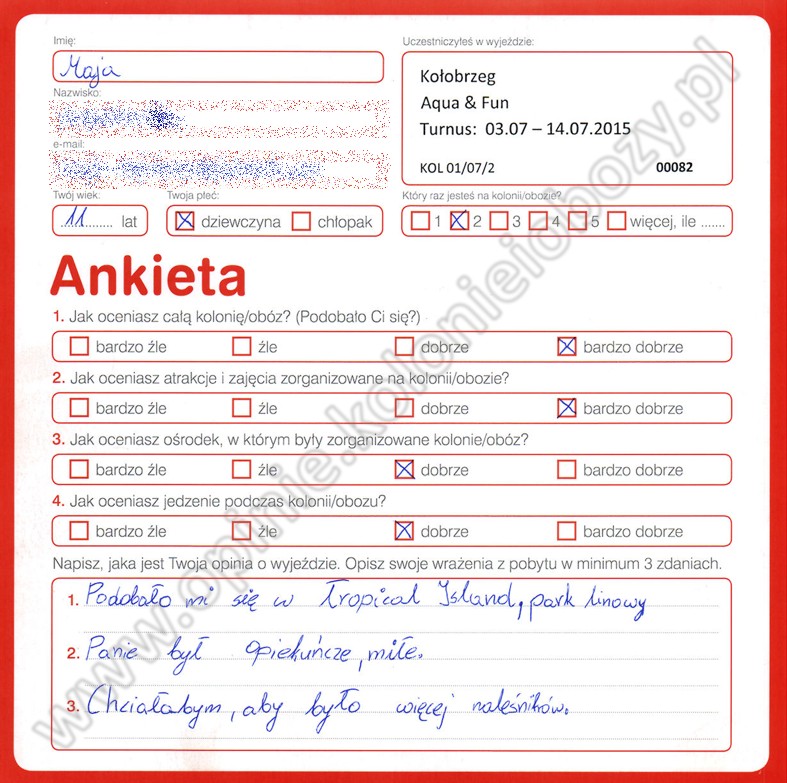 Imię:
Maja
Nazwisko:
e-mail:
Uczestniczyłeś w wyjeździe:
Kołobrzeg
Aqua & Fun
Turnus: 03.07 – 14.07.2015
KOL 01/07/2 00082
Twój wiek:
11 lat
Twoja płeć:
dziewczyna chłopak
Który raz jesteś na kolonii/obozie?
1 2 3 4 5 więcej, ile .......
Ankieta
1. Jak oceniasz całą kolonię/obóz? (Podobało Ci się?)
bardzo źle źle dobrze bardzo dobrze
2. Jak oceniasz atrakcje i zajęcia zorganizowane na kolonii/obozie?
bardzo źle źle dobrze bardzo dobrze
3. Jak oceniasz ośrodek, w którym były zorganizowane kolonie/obóz?
bardzo źle źle dobrze bardzo dobrze
4. Jak oceniasz jedzenie podczas kolonii/obozu?
bardzo źle źle dobrze bardzo dobrze
Napisz, jaka jest Twoja opinia o wyjeździe. Opisz swoje wrażenia z pobytu w minimum 3 zdaniach.
1. Podobało mi się w Tropical Island, park linowy
2. Panie był opiekuńcze, miłe.
3. Chciałabym, aby było więcej naleśników.
www.opinie.kolonieiobozy.pl